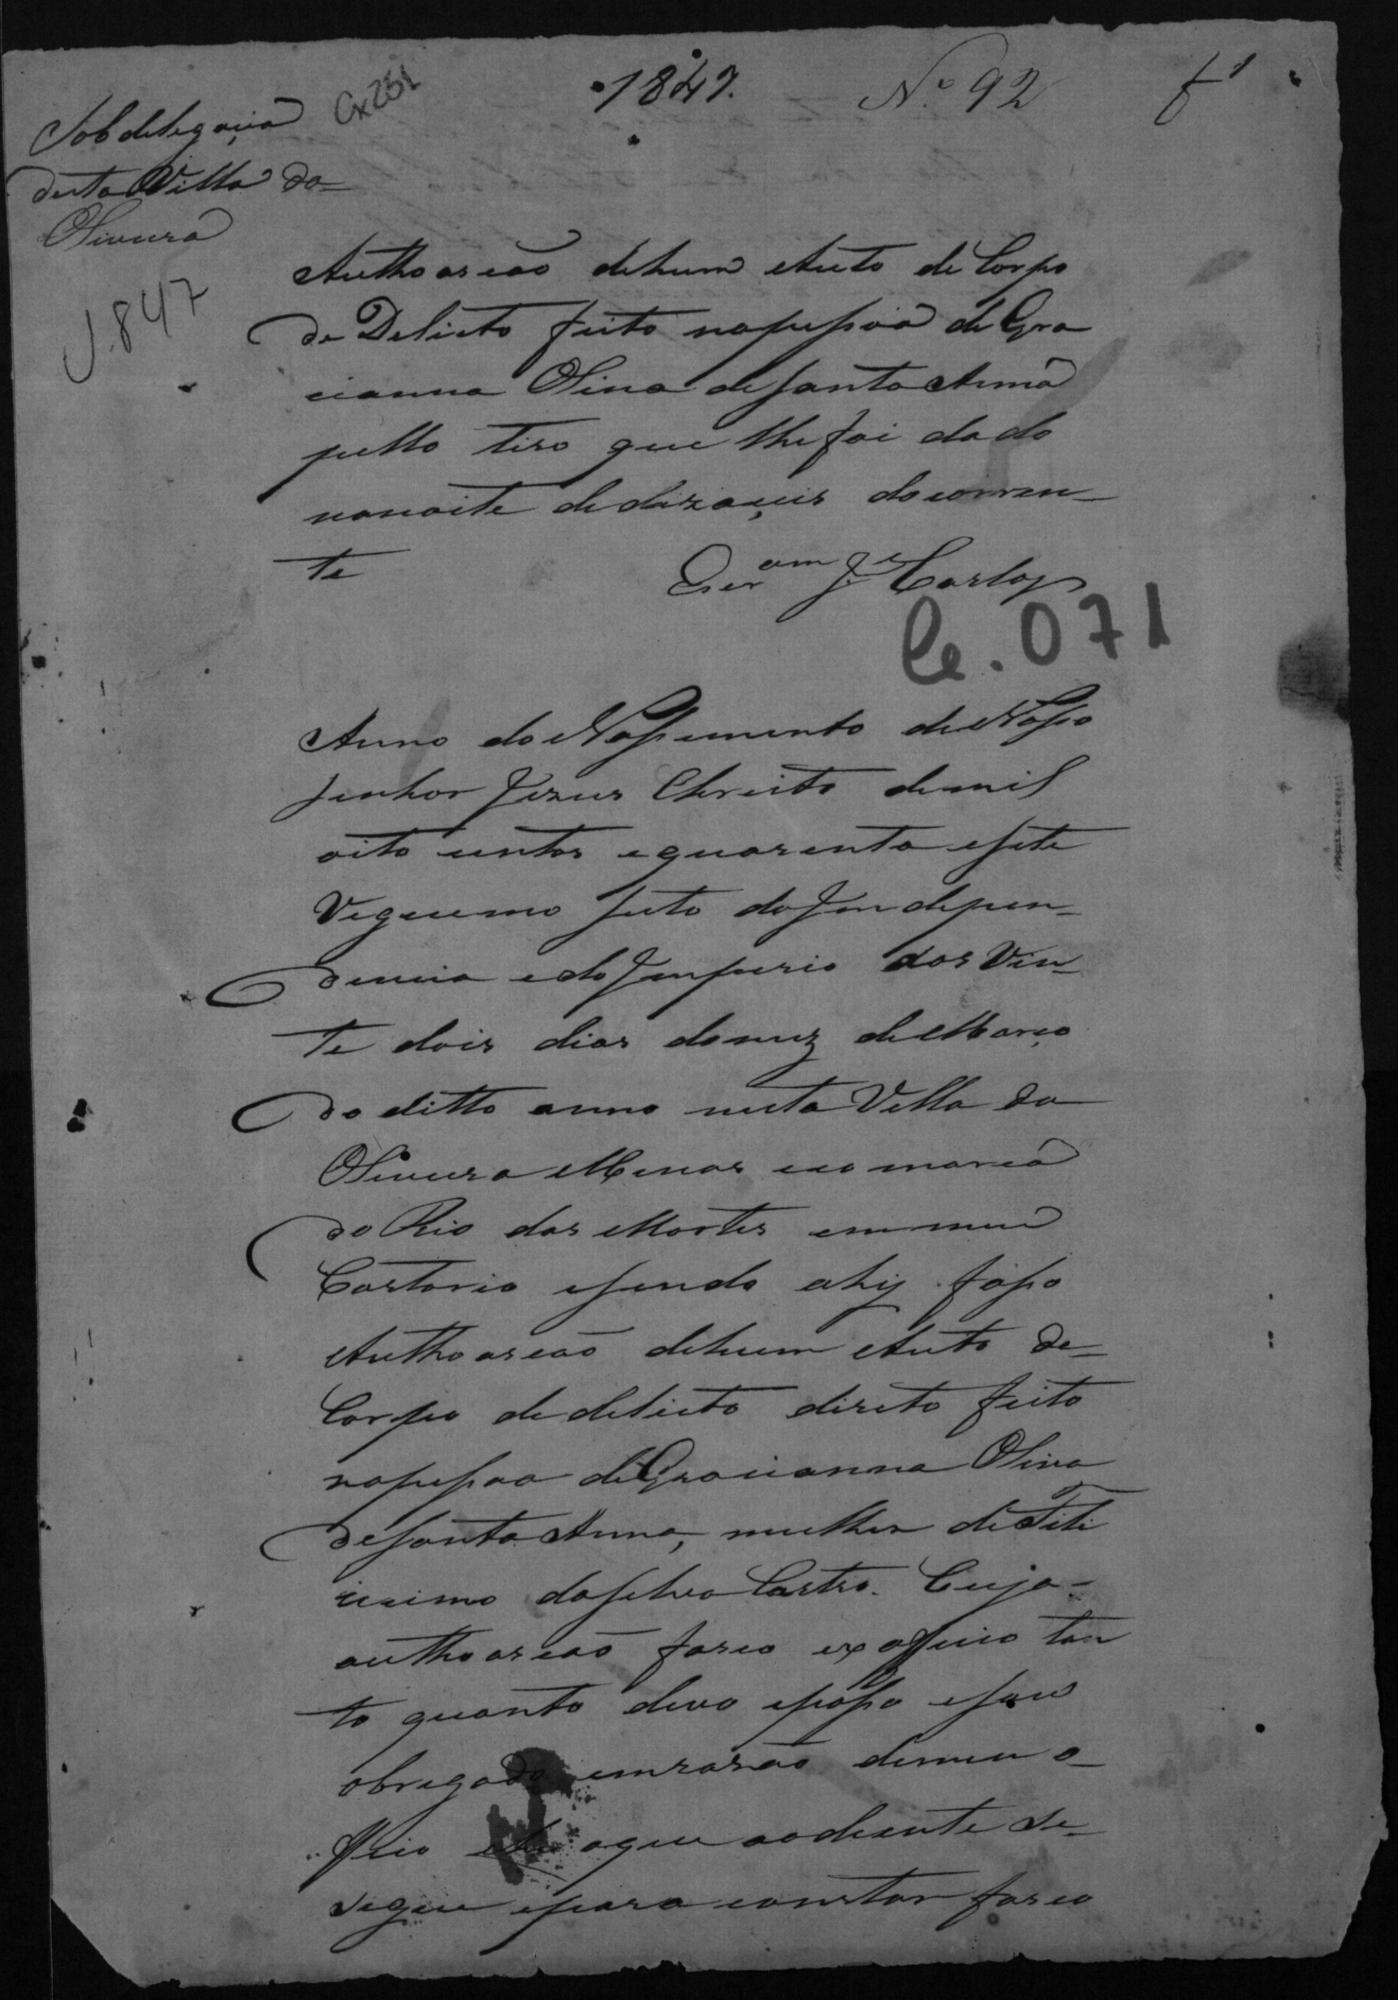 1847. Nº 92 f 1
Cx 251
Sobdelegacia
desta Villa da
Oliveira
1847
Authoasção dehum Auto de Corpo
de Delicto feito napessoa de Gra
cianna Oliva de santa Anna
pello tiro que lhe foi dado
nanoite de dezaçeis docorren-
te
Escr.am J.e Carlos
Ce. 071
Anno do Nassimento de Nosso
senhor Jezus Christo demil
oito centos equarenta esete
Vigecimo seto da Jndepen-
dencia edo Jmperio aos Vin-
te dois dias domez de Março
do ditto anno nesta Villa da
Oliveira Minas ecomarca
do Rio das Mortes em meu
Cartorio esendo ahy fasso
Authoasção dehum Auto de
Corpo de delicto direto feito
napessoa de Gracianna Oliva
de santa Anna, mulher de Feli
cicimo da silva Castro. Cuja
authoasção fasso ex officio tan
to quanto devo eposso esou
obrigado emrazão demeu o-
fficio oque aodiente se-
segue epara constar fasso